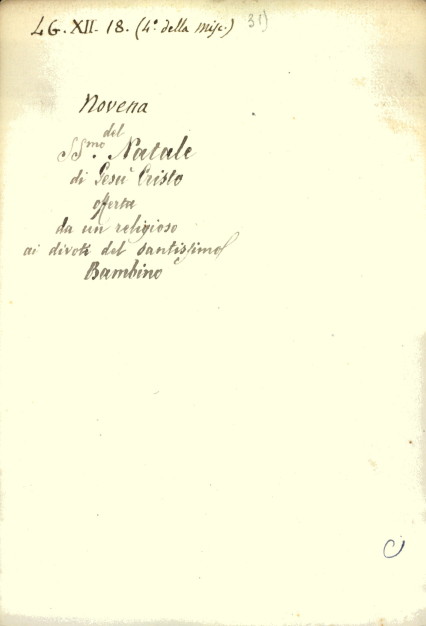 LG. XII. 18. (4º. della Misc.) 31)
Novena
del
SSmo. Natale
di Gesù Cristo
offerta
da un religioso
ai divoti del Santissimo
Bambino